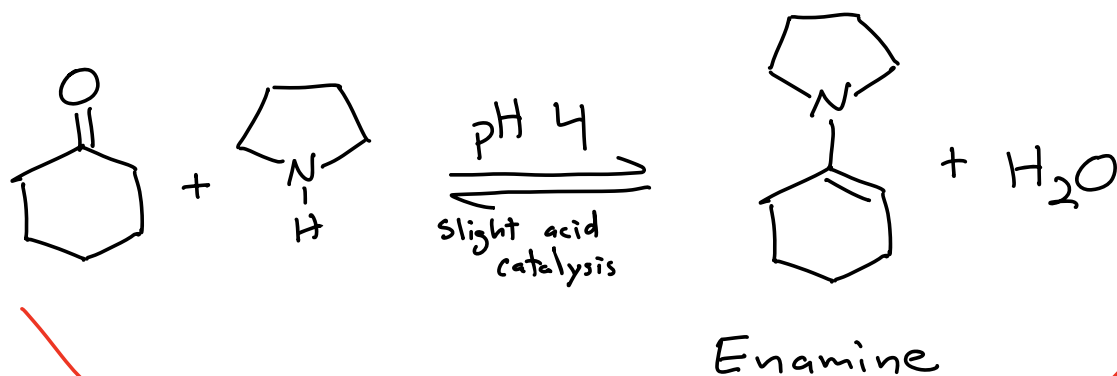 O
+
N
H
pH 4
Slight acid
catalysis
N
+ H₂O
Enamine